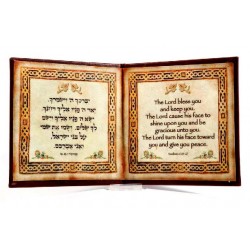 יברכך ה' וישמרך
יאר ה' פניו אליך ויחנך
ישא ה' פניו אליך וישם
לך שלום. ושמו את שמי
על בני ישראל,
ואני אברכם.
The Lord bless you
and keep you.
The Lord cause his face to
shine upon you and be
gracious unto you.
The Lord turn his face toward
you and give you peace.